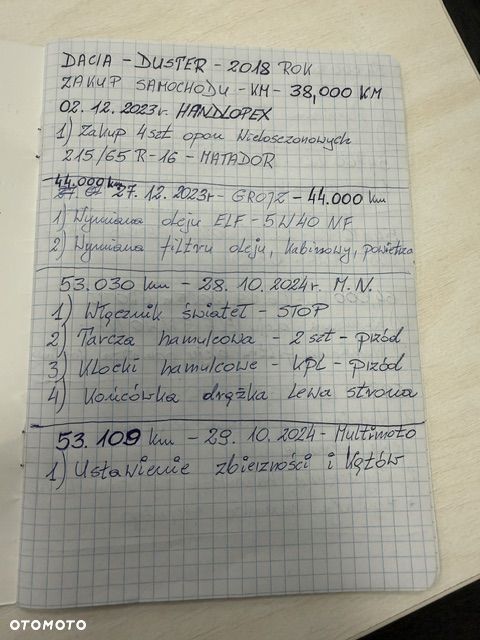 DACIA - DUSTER - 2018 ROK
ZAKUP SAMOCHODU - KM - 38,000 KM
02.12.2023r. HANDLOPEX
1) Zakup 4szt opon Wielosezonowych
215/65 R-16 - MATADOR
44.000 km
27.12.2023r - GROJZ - 44.000 km
1) Wymiana oleju ELF - 5W40 NF
2) Wymiana filtru oleju, kabinowy, powietrza
53.030 km - 28.10.2024r. M.N.
1) Włącznik świateł - STOP
2) Tarcza hamulcowa - 2 szt - pizód
3) Klocki hamulcowe - kpl - pizód
4) Końcówka drążka lewa strona
53.109 km - 29.10.2024 - Multimoto
1) Ustawienie zbieżności i kątów
OTOMOTO